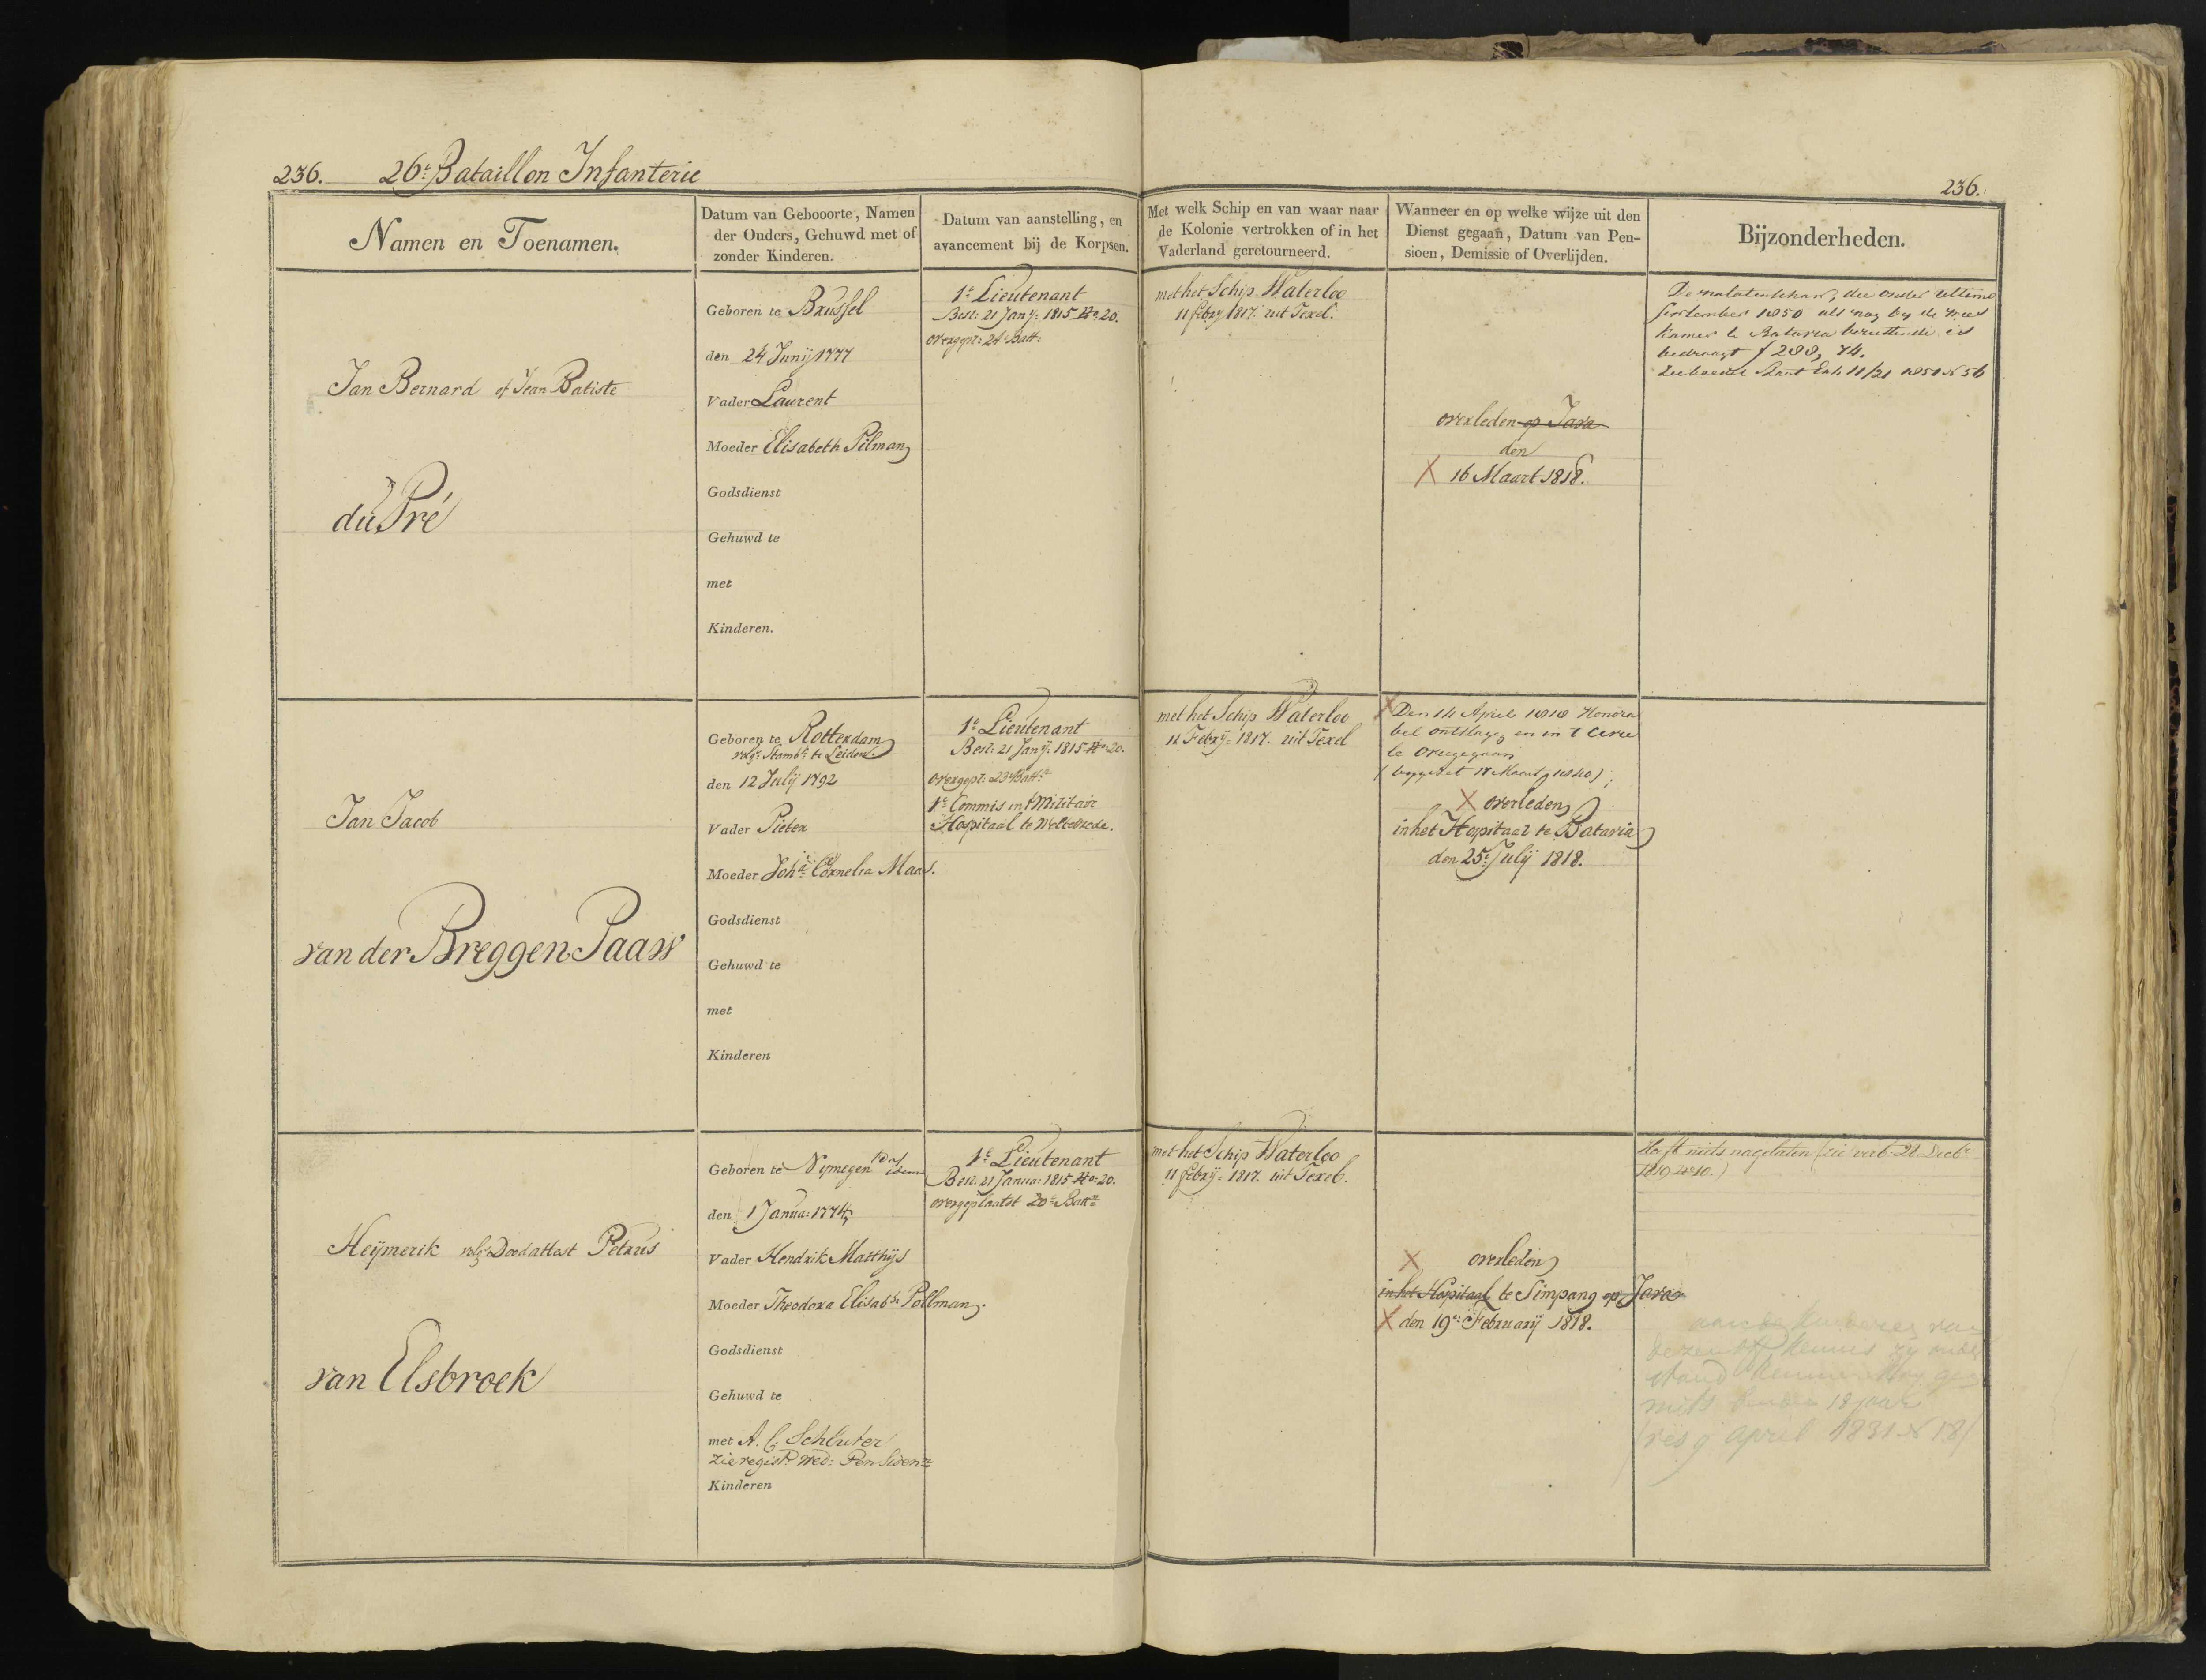 236. 26e Bataillon Infanterie
236.
Namen en Toenamen.
Datum van Gebooorte, Namen
der Ouders, Gehuwd met of
zonder Kinderen.
Datum van aanstelling, en
avancement bij de Korpsen.
Met welk Schip en van waar naar
de Kolonie vertrokken of in het
Vaderland geretourneerd.
Wanneer en op welke wijze uit den
Dienst gegaan, Datum van Pen-
sioen, Demissie of Overlijden.
Bijzonderheden.
Jan Bernard of Jean Batiste
du Pré
Geboren te Brussel
den 24 Junij 1777
Vader Laurent
Moeder Elisabeth Pilman
Godsdienst
Gehuwd te
met
Kinderen.
1e Lieutenant
Besl: 21 Jany: 1815 No 20.
overgepl: 24 Batt:
met het Schip Waterloo
11 febry 1817. uit Texel.
overleden op Java
den
X 16 Maart 1818.
De nalatenschap, die onder ultimo
September 1850 als nog by de Wees
Kamer te Batavia berustende is
bedraagt f 288, 74.
11/21 1851 N 56
Jan Jacob
van der Breggen Paauw
Geboren te Rotterdam
volgs Stambk te Leiden.
den 12 Julij 1792
Vader Pieter
Moeder Joha Cornelia Maas.
Godsdienst
Gehuwd te
met
Kinderen
1e Lieutenant
Besl: 21 Jany: 1815 No 20.
overgepl: 23e Battn
1e Commis in t Militair
Hospitaal te Weltevrede.
met het Schip Waterloo
11 Febry: 1817. uit Texel
X Den 14 April 1818 Honora
bel ontslagen en in t Civie
le overgegaan
X overleden
in het Hospitaal te Batavia
den 25e Julij 1818.
Heijmerik volgs Doodattest Petrus
van Elsbroek
Geboren te Nymegen idem
den 1 Janua: 1774
Vader Hendrik Matthijs
Moeder Theodora Elisabth Pollman.
Godsdienst
Gehuwd te
met A. C. Schluter
zie regist. Wed: Pensioen
Kinderen
1e Lieutenant
Besl. 21 Janua: 1815 No. 20.
overgeplaatst 20e Battn
met het Schip Waterloo
11 febry: 1817. uit Texel.
X overleden
in het Hospitaal te Simpang op Java
X den 19e February 1818.
Heeft niets nagelaten (zie verb. 21 Decbr
1819 No 10.)
18 jaar
april 1831 N 18)